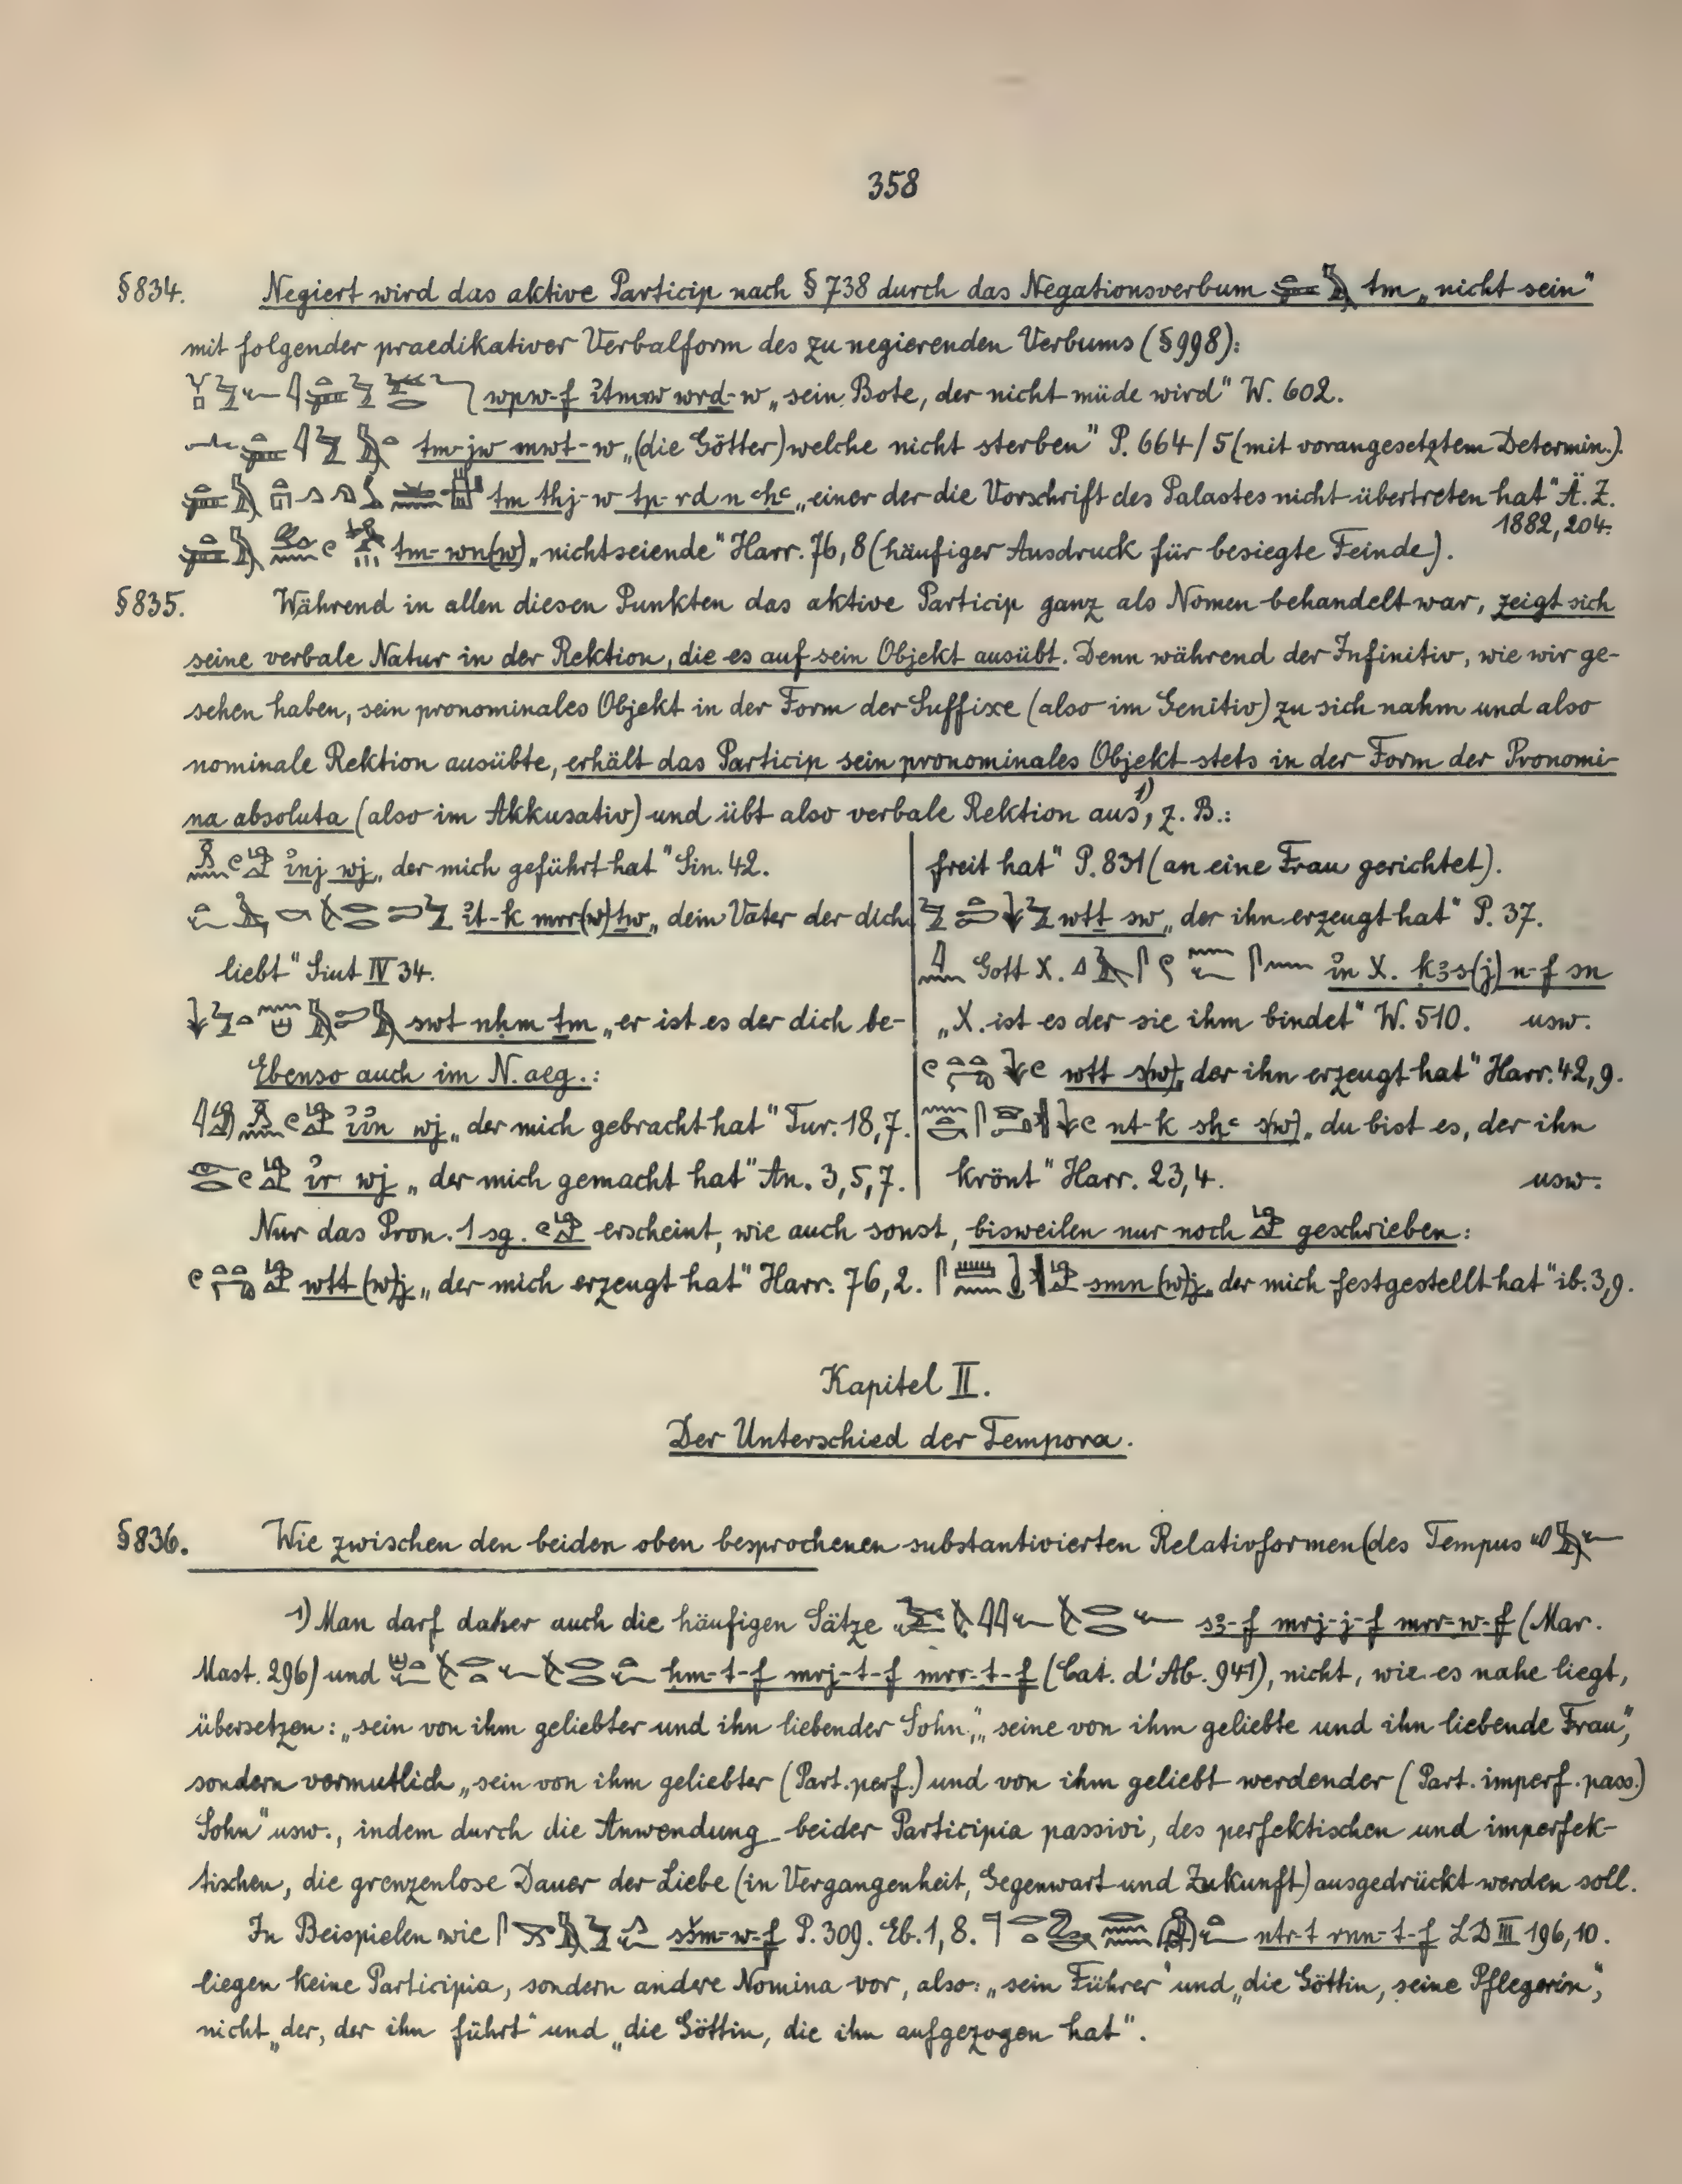 358
§834. Negiert wird das aktive Particip nach § 738 durch das Negationsverbum tm „nicht sein"
mit folgender praedikativer Verbalform des zu negierenden Verbums (§998):
wpw-f ꞽtmw wrd-w „sein Bote, der nicht müde wird" W. 602.
tm-jw mwt-w „(die Götter) welche nicht sterben" P. 664/5 (mit vorangesetztem Determin.).
tm thj-w tp-rd n ꜥḥꜥ „einer der die Vorschrift des Palastes nicht übertreten hat" Ä.Z.
1882, 204.
tm-wn(w) „nichtseiende" Harr. 76, 8 (häufiger Ausdruck für besiegte Feinde).
§835. Während in allen diesen Punkten das aktive Particip ganz als Nomen behandelt war, zeigt sich
seine verbale Natur in der Rektion, die es auf sein Objekt ausübt. Denn während der Infinitiv, wie wir ge-
sehen haben, sein pronominales Objekt in der Form der Suffixe (also im Genitiv) zu sich nahm und also
nominale Rektion ausübte, erhält das Particip sein pronominales Objekt stets in der Form der Pronomi-
na absoluta (also im Akkusativ) und übt also verbale Rektion aus¹⁾, z. B.:
ꞽnj wj „der mich geführt hat" Sin. 42.
ꞽt-k mrr(w) ṯw „dein Vater der dich
liebt" Siut IV 34.
swt nḥm ṯm „er ist es der dich be-
freit hat" P. 831 (an eine Frau gerichtet).
wtṯ sw „der ihn erzeugt hat" P. 37.
Gott X. ꞽn X. ḳꜣs(j) n-f sn
„X. ist es der sie ihm bindet" W. 510. usw.
Ebenso auch im N. aeg.:
ꞽꞽn wj „der mich gebracht hat" Tur. 18, 7.
ꞽr wj „der mich gemacht hat" An. 3, 5, 7.
wtt s(w) „der ihn erzeugt hat" Harr. 42, 9.
nt-k sḫꜥ s(w) „du bist es, der ihn
krönt" Harr. 23, 4. usw.
Nur das Pron. 1 sg. erscheint, wie auch sonst, bisweilen nur noch geschrieben:
wtt (w)j „der mich erzeugt hat" Harr. 76, 2. smn (w)j „der mich festgestellt hat" ib. 3, 9.
Kapitel II.
Der Unterschied der Tempora.
§836. Wie zwischen den beiden oben besprochenen substantivierten Relativformen (des Tempus
1) Man darf daher auch die häufigen Sätze sꜣ-f mrj-j-f mrr-w-f (Mar.
Mast. 296) und ḥm-t-f mrj-t-f mrr-t-f (Cat. d'Ab. 941), nicht, wie es nahe liegt,
übersetzen: „sein von ihm geliebter und ihn liebender Sohn", „seine von ihm geliebte und ihn liebende Frau",
sondern vermutlich „sein von ihm geliebter (Part. perf.) und von ihm geliebt werdender (Part. imperf. pass.)
Sohn" usw., indem durch die Anwendung beider Participia passivi, des perfektischen und imperfek-
tischen, die grenzenlose Dauer der Liebe (in Vergangenheit, Gegenwart und Zukunft) ausgedrückt werden soll.
In Beispielen wie sšm-w-f P. 309. Eb. 1, 8. ntr-t rnn-t-f LD III 196, 10.
liegen keine Participia, sondern andere Nomina vor, also: „sein Führer" und „die Göttin, seine Pflegerin",
nicht „der, der ihn führt" und „die Göttin, die ihn aufgezogen hat".